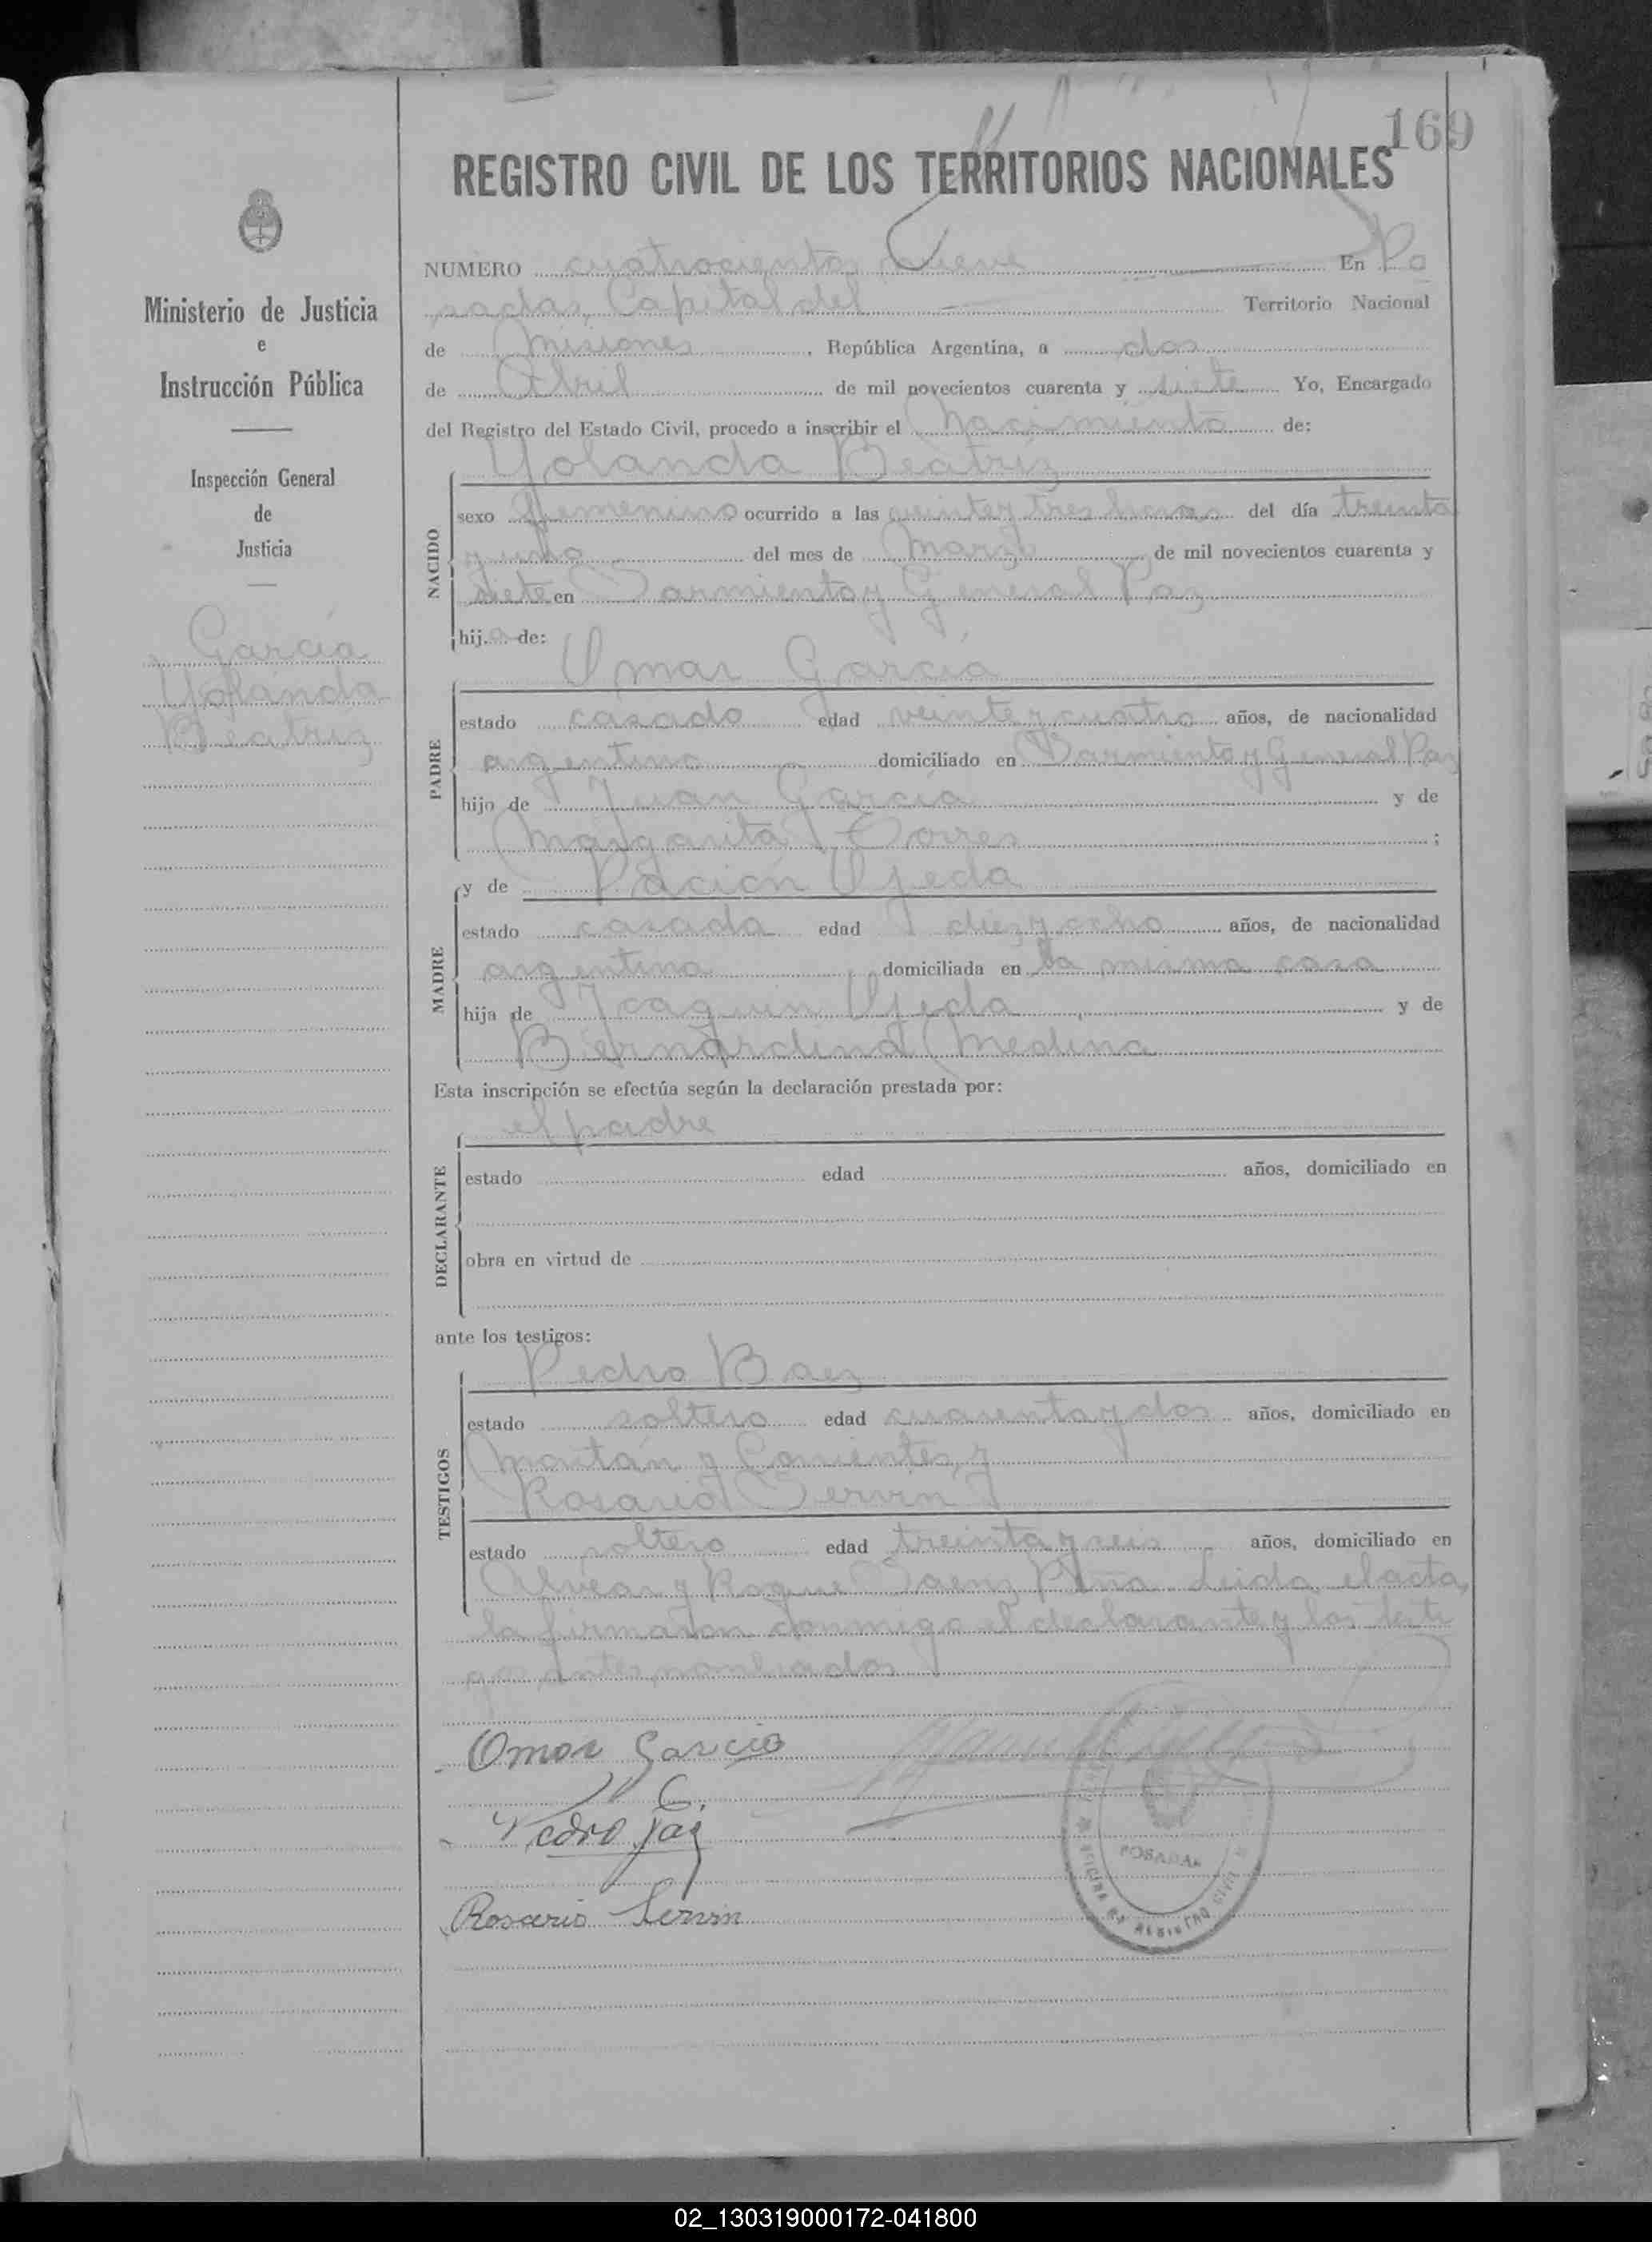 169
REGISTRO CIVIL DE LOS TERRITORIOS NACIONALES
Ministerio de Justicia
e
Instrucción Pública
Inspección General
de
Justicia
García
Yolanda
Beatriz
NUMERO cuatrocientos nueve En Po
sadas, Capital del Territorio Nacional
de Misiones, República Argentina, a dos
de Abril de mil novecientos cuarenta y siete Yo, Encargado
del Registro del Estado Civil, procedo a inscribir el nacimiento de:
Yolanda Beatriz
NACIDO
sexo femenino ocurrido a las veinte y tres horas del día treinta
y uno del mes de Marzo de mil novecientos cuarenta y
siete en Sarmiento y General Paz
hija de:
Omar García
PADRE
estado casado edad veinte y cuatro años, de nacionalidad
argentino domiciliado en Sarmiento y General Paz
hijo de Juan García y de
Margarita Torres ;
y de Ojeda
MADRE
estado casada edad diez y ocho años, de nacionalidad
argentina domiciliada en la misma casa
hija de Joaquin Ojeda y de
Bernardina Medina
Esta inscripción se efectúa según la declaración prestada por:
el padre
DECLARANTE
estado edad años, domiciliado en
obra en virtud de
ante los testigos:
Pedro Baez
TESTIGOS
estado soltero edad cuarenta y dos años, domiciliado en
y Corrientes, y
Rosario Servin
estado soltero edad treinta y seis años, domiciliado en
Alvear y Roque Saenz Peña. Leida el acta,
la firmaron conmigo el declarante y los testi
gos antes nombrados
Omar Garcia
Pedro
Rosario Servin
POSADAS
OFICINA DE REGISTRO CIVIL
02_130319000172-041800